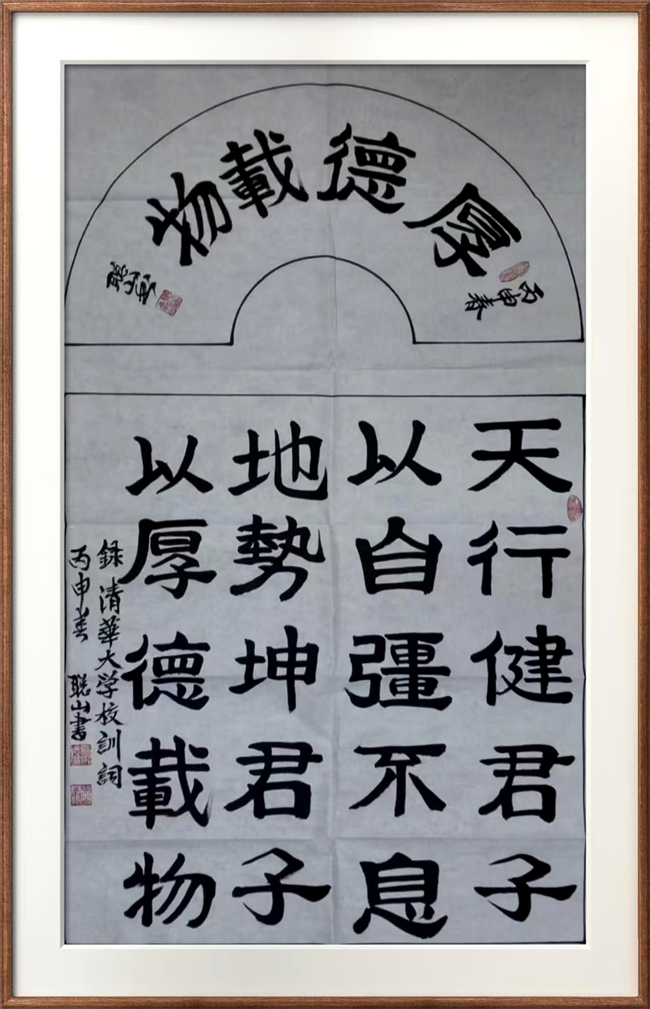 厚德載物
丙申春
天行健君子
以自彊不息
地勢坤君子
以厚德載物
録清華大学校訓詞
丙申春 聪山書